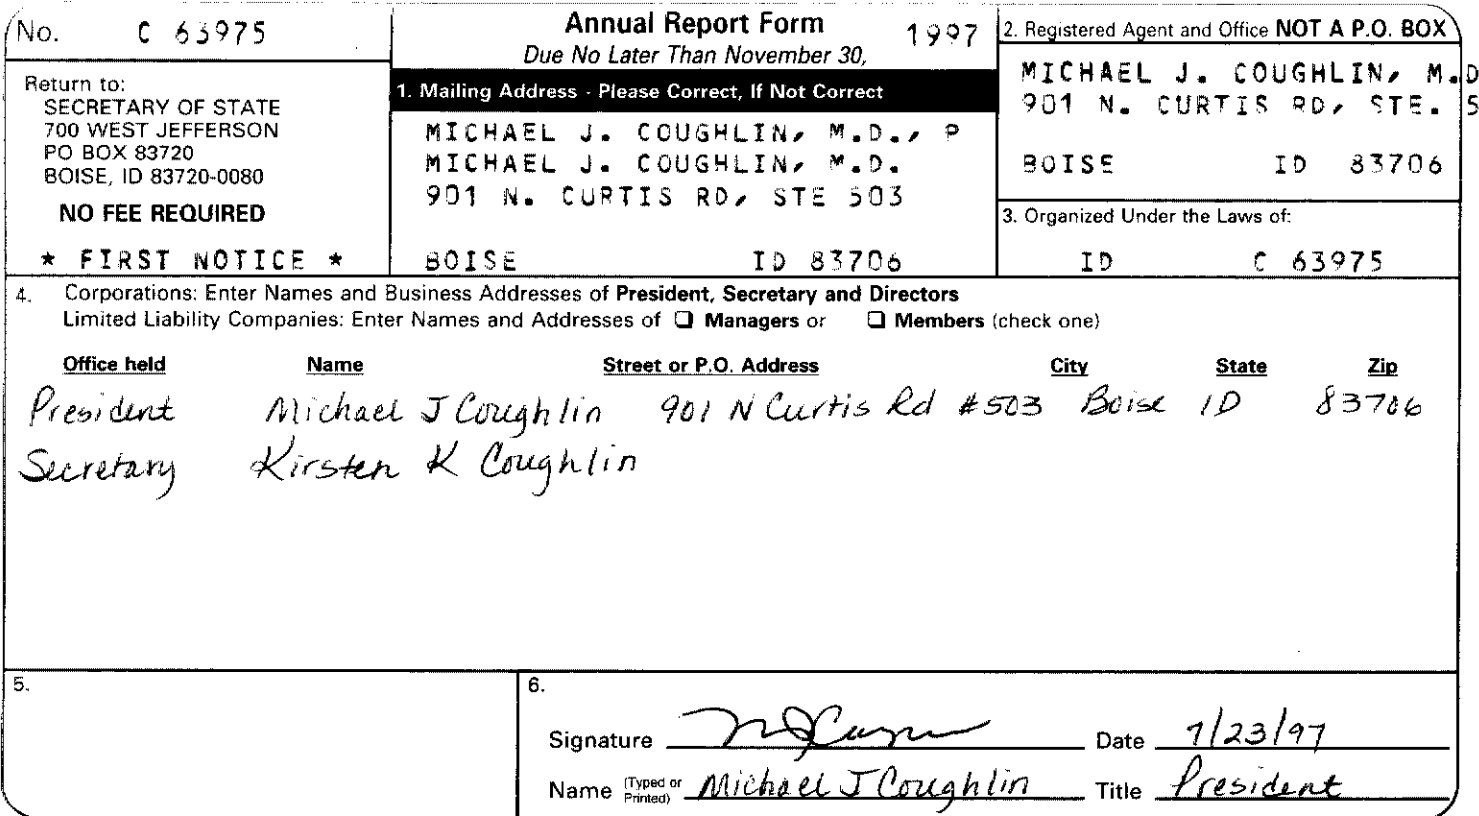 No. C 63975
Return to:
SECRETARY OF STATE
700 WEST JEFFERSON
PO BOX 83720
BOISE, ID 83720-0080
NO FEE REQUIRED
* FIRST NOTICE *
Annual Report Form 1997
Due No Later Than November 30,
1. Mailing Address - Please Correct, If Not Correct
MICHAEL J. COUGHLIN, M.D., P
MICHAEL J. COUGHLIN, M.D.
901 N. CURTIS RD, STE 503
BOISE ID 83706
2. Registered Agent and Office NOT A P.O. BOX
MICHAEL J. COUGHLIN, M.D
901 N. CURTIS RD, STE. 5
BOISE ID 83706
3. Organized Under the Laws of:
ID C 63975
4. Corporations: Enter Names and Business Addresses of President, Secretary and Directors
Limited Liability Companies: Enter Names and Addresses of ❑ Managers or ❑ Members (check one)
Office held Name Street or P.O. Address City State Zip
President Michael J Coughlin 901 N Curtis Rd #503 Boise ID 83706
Secretary Kirsten K Coughlin
5.
6.
Signature Date 7/23/97
Name (Typed or Printed) Michael J Coughlin Title President